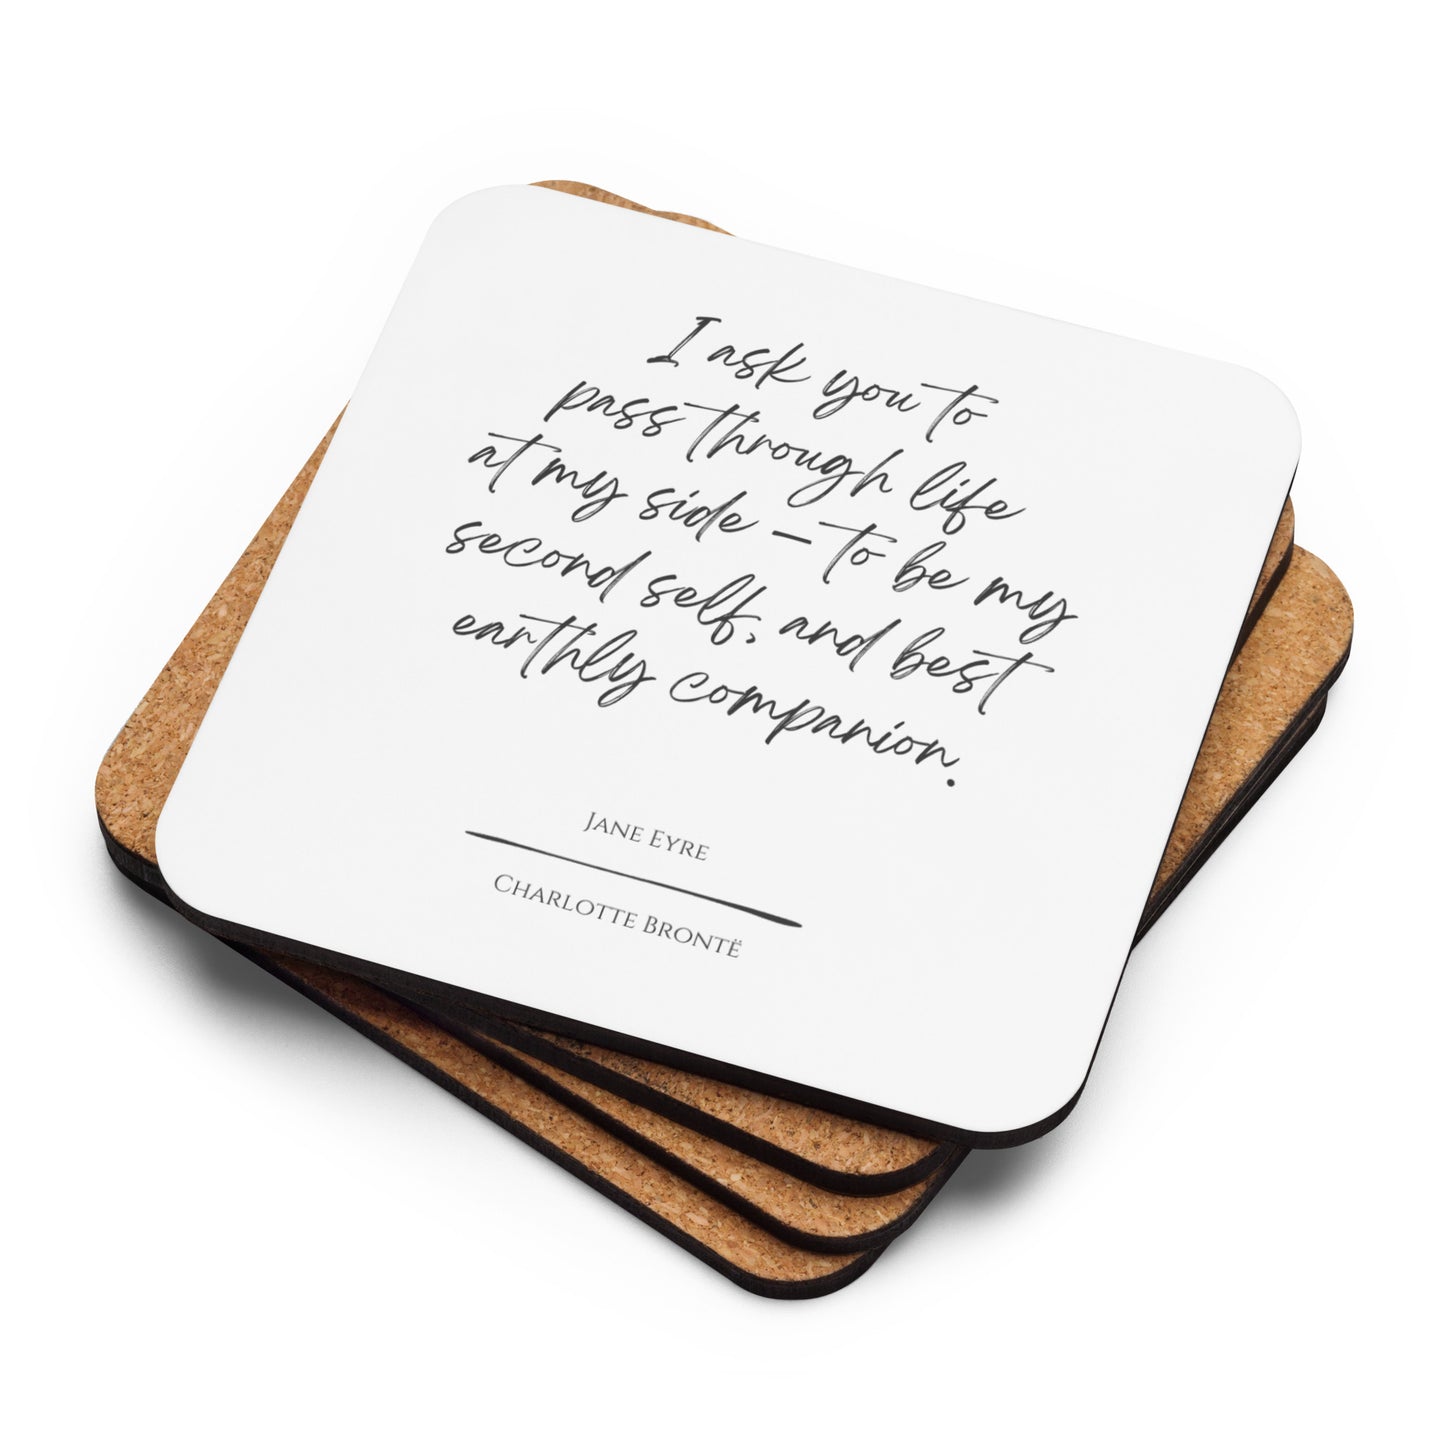 I ask you to
pass through life
at my side – to be my
second self, and best
earthly companion.
Jane Eyre
Charlotte Brontë